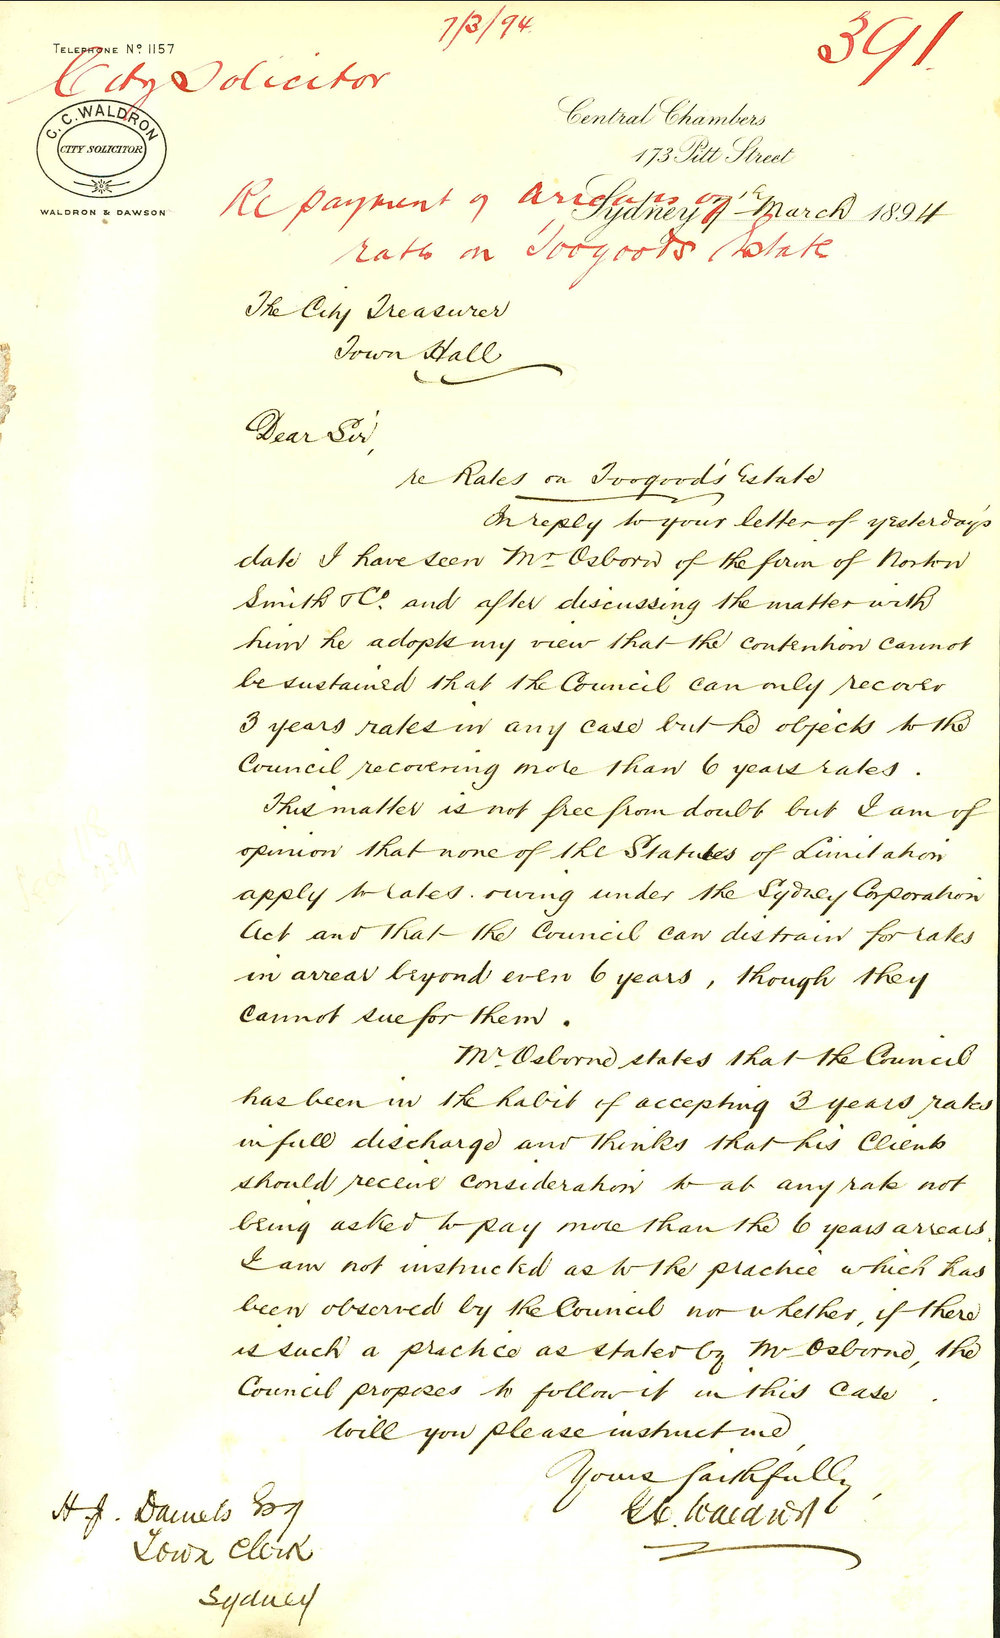 7/3/94
391
TELEPHONE No 1157
City Solicitor
C.C. WALDRON
CITY SOLICITOR
WALDRON & DAWSON
Central Chambers
173 Pitt Street
Sydney 7th March 1894
Re payment of arrears of
rates on Toogoods Estate
The City Treasurer
Town Hall
Dear Sir,
re Rates on Toogood's Estate
In reply to your letter of yesterday's
date I have seen Mr Osborn of the firm of Norton
Smith & Co. and after discussing the matter with
him he adopts my view that the contention cannot
be sustained that the Council can only recover
3 years rates in any case but he objects to the
Council recovering more than 6 years rates.
This matter is not free from doubt but I am of
opinion that none of the Statutes of Limitation
apply to rates owing under the Sydney Corporation
Act and that the Council can distrain for rates
in arrear beyond even 6 years, though they
cannot sue for them.
Mr Osborne states that the Council
has been in the habit of accepting 3 years rates
in full discharge and thinks that his Clients
should receive consideration to at any rate not
being asked to pay more than the 6 years arrears.
I am not instructed as to the practice which has
been observed by the Council nor whether, if there
is such a practice as stated by Mr Osborne, the
Council proposes to follow it in this case.
Will you please instruct me
Yours faithfully,
C.C. Waldron
H. J. Daniels Esq
Town Clerk
Sydney